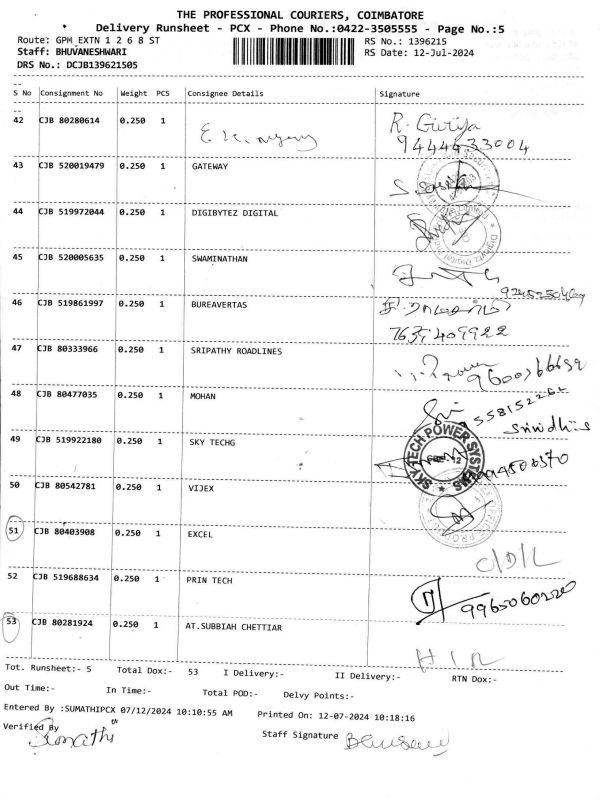 THE PROFESSIONAL COURIERS, COIMBATORE
Delivery Runsheet - PCX - Phone No.:0422-3505555 - Page No.:5
Route: GPM EXTN 1 2 6 8 ST RS No.: 1396215
Staff: BHUVANESHWARI RS Date: 12-Jul-2024
DRS No.: DCJB139621505
S No Consignment No Weight PCS Consignee Details Signature
42 CJB 80280614 0.250 1 R. Girija
9444433004
43 CJB 520019479 0.250 1 GATEWAY
44 CJB 519972044 0.250 1 DIGIBYTEZ DIGITAL
45 CJB 520005635 0.250 1 SWAMINATHAN
46 CJB 519861997 0.250 1 BUREAVERTAS
47 CJB 80333966 0.250 1 SRIPATHY ROADLINES
48 CJB 80477035 0.250 1 MOHAN
Srividhis
49 CJB 519922180 0.250 1 SKY TECHG SKYTECH POWER SYSTEMS
50 CJB 80542781 0.250 1 VIJEX
51 CJB 80403908 0.250 1 EXCEL
C/D/L
52 CJB 519688634 0.250 1 PRIN TECH
9965060220
53 CJB 80281924 0.250 1 AT.SUBBIAH CHETTIAR
Tot. Runsheet:- 5 Total Dox:- 53 I Delivery:- II Delivery:- RTN Dox:-
Out Time:- In Time:- Total POD:- Delvy Points:-
Entered By :SUMATHIPCX 07/12/2024 10:10:55 AM Printed On: 12-07-2024 10:18:16
Verified By Staff Signature
Sumathi